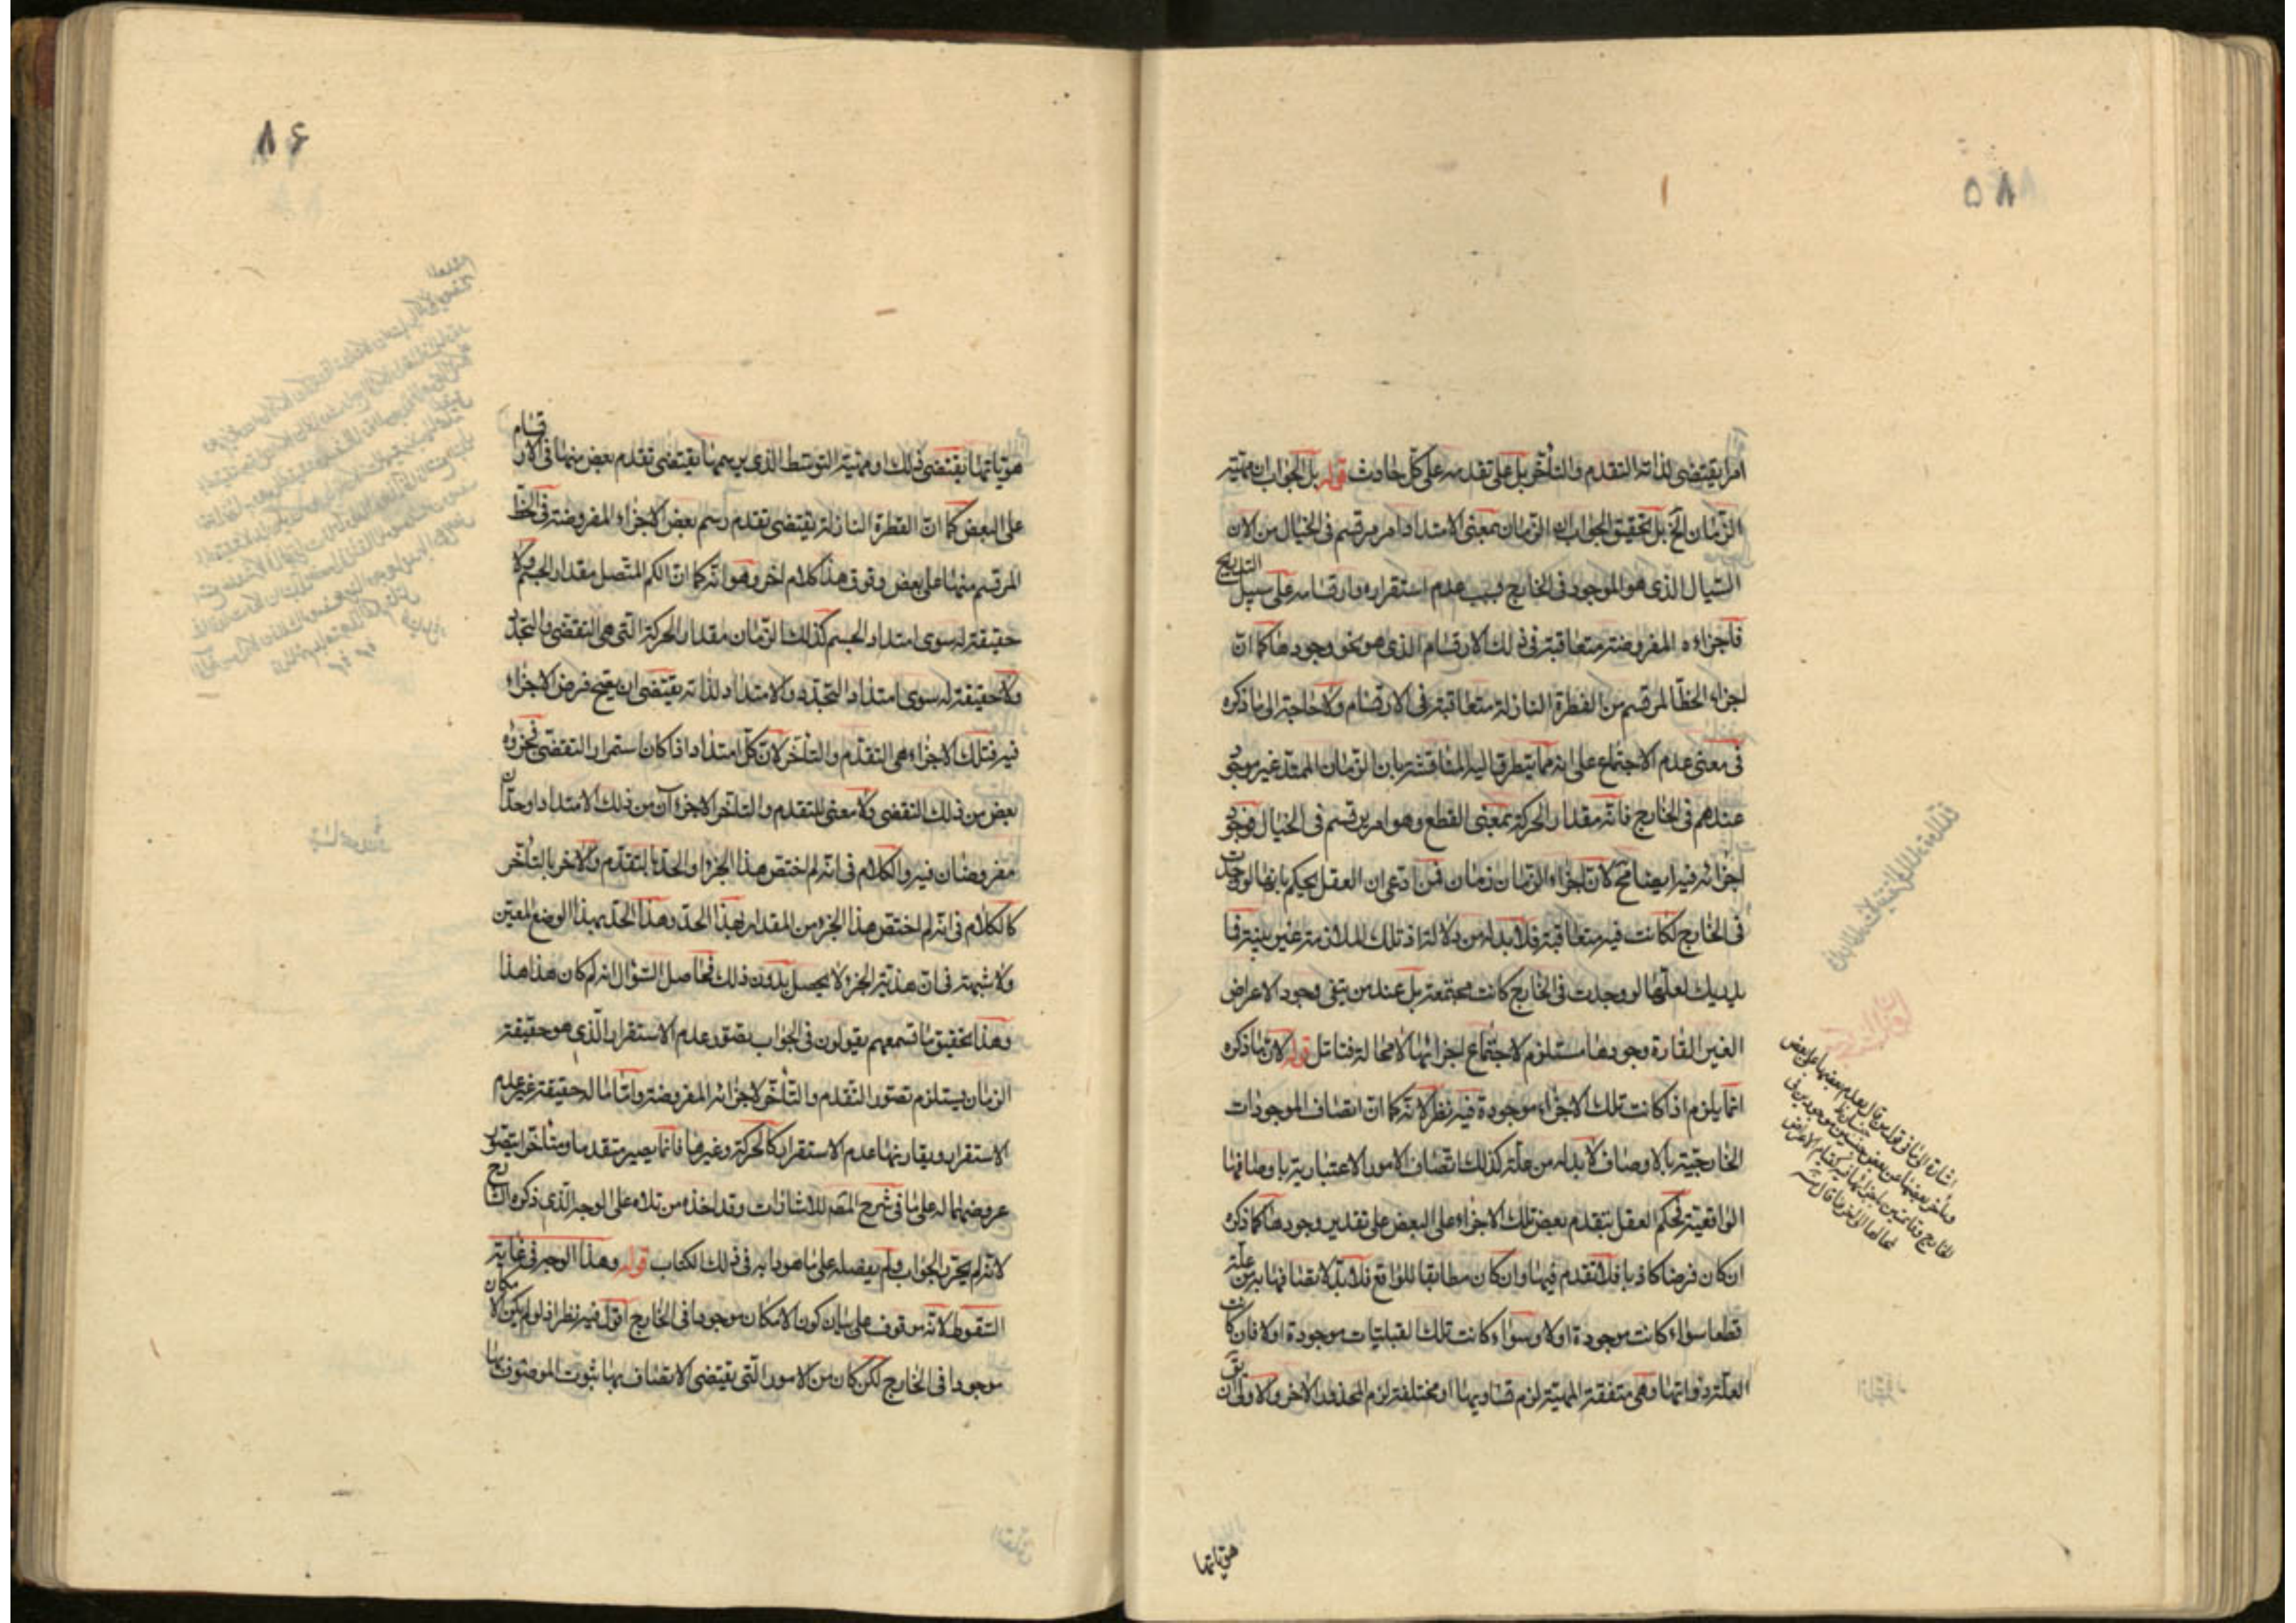 ٨٥
امرا يقتضى لذاته التقدم والتأخر بل على تقدمه على كل حادث قوله بل الجواب ان مهية
الزمان الخ بل تحقيق الجواب ان الزمان بمعنى الامتداد امر مرتسم فى الخيال من الان
السيال الذى هو الموجود فى الخارج وبسبب عدم استقراره وارتسامه على سبيل التدريج
فاجزاؤه المفروضة متعاقبة فى ذلك الارتسام الذى هو نحو وجودها كما ان
اجزاء الخط المرتسم من القطرة النازلة متعاقبة فى الارتسام ولا حاجة الى ما ذكره
فى معنى عدم الاجتماع على انه مما يتطرق اليه المناقشة بان الزمان الممتد غير موجود
عندهم فى الخارج فانه مقدار الحركة بمعنى القطع وهو امر يرتسم فى الخيال فوجود
اجزائه فيه ايضا مح لان اجزاء الزمان زمان فمن ادعى ان العقل يحكم بانها لو وجدت
فى الخارج لكانت فيه متعاقبة فلا بد له من دلالة اذ تلك الملازمة غير بينة فما
يدريك لعلها لو وجدت فى الخارج كانت مجتمعة بل عند من ينفى وجود الاعراض
الغير القارة وجودها مستلزم لاجتماع اجزائها لا محالة فتامل قوله لان ما ذكره
انما يلزم اذا كانت تلك الاجزاء موجودة فيه نظر لانه كما ان اتصاف الموجودات
الخارجية بالاوصاف لا بد له من علة كذلك اتصاف الامور الاعتبارية باوصافها
الواقعية فحكم العقل بتقدم بعض تلك الاجزاء على البعض على تقدير وجودها كما ذكره
ان كان فرضا كاذبا فلا تقدم فيها وان كان مطابقا للواقع فلا بد لاتصافها به من علة
قطعا سواء كانت موجودة اولا وسواء كانت تلك القبليات موجودة اولا فان كانت
العلة ذواتها وهى متفقة المهية لزم تساويها او مختلفة لزم المحذور الاخر والاولى ان يق
اشارة الى ما فى قوله من قال بعدم بعضها على بعض
هوياتها
٨۶
هوياتها يقتضى ذلك او مهية التوسط الذى يرسمها يقتضى تقدم بعض منها فى الارتسام
على البعض كما ان القطرة النازلة يقتضى تقدم رسم بعض الاجزاء المفروضة فى الخط
المرتسم منها على بعض وفوق هذا كلام اخر وهو انه كما ان الكم المتصل مقدار الجسم ولا
حقيقة له سوى امتداد الجسم كذلك الزمان مقدار الحركة التى هى التقضى والتجدد
ولا حقيقة له سوى امتداد التجدد والامتداد لذاته يقتضى ان يصح فرض الاجزاء
فيه فتلك الاجزاء هى التقدم والتأخر لان كل امتداد اذا كان استمرار التقضى فجزوه
بعض من ذلك التقضى ولا معنى للتقدم والتأخر الا جزءان من ذلك الامتداد او حدان
مفروضان فيه والكلام فى انه لم اختص هذا الجزء او الحد بالتقدم والاخر بالتأخر
كالكلام فى انه لم اختص هذا الجزء من المقدار بهذا الحد وهذا الحد بهذا الوضع المعين
ولا شبهة فى ان هذية الجزء لا يحصل بدون ذلك فحاصل السؤال انه لم كان هذا هذا
وهذا تحقيق ما تسمعهم يقولون فى الجواب بتصور عدم الاستقرار الذى هو حقيقة
الزمان يستلزم تصور التقدم والتأخر لاجزائه المفروضة واما ما له حقيقة غير عدم
الاستقرار ويقارنها عدم الاستقرار كالحركة وغيرها فانما يصير متقدما ومتأخرا بتصور
عروضهما له على ما فى شرح المص للاشارات وقد اخذه من تلاه على الوجه الذى ذكره الشارح
لانه لم يحرر الجواب ولم يفصله على ما هو دابه فى ذلك الكتاب قوله وهذا الوجه فى غاية
السقوط لانه موقوف على بيان كون الامكان موجودا فى الخارج اقول فيه نظر اذ لو لم يكن الامكان
موجودا فى الخارج لكن كان من الامور التى يقتضى الاتصاف بها ثبوت الموصوف